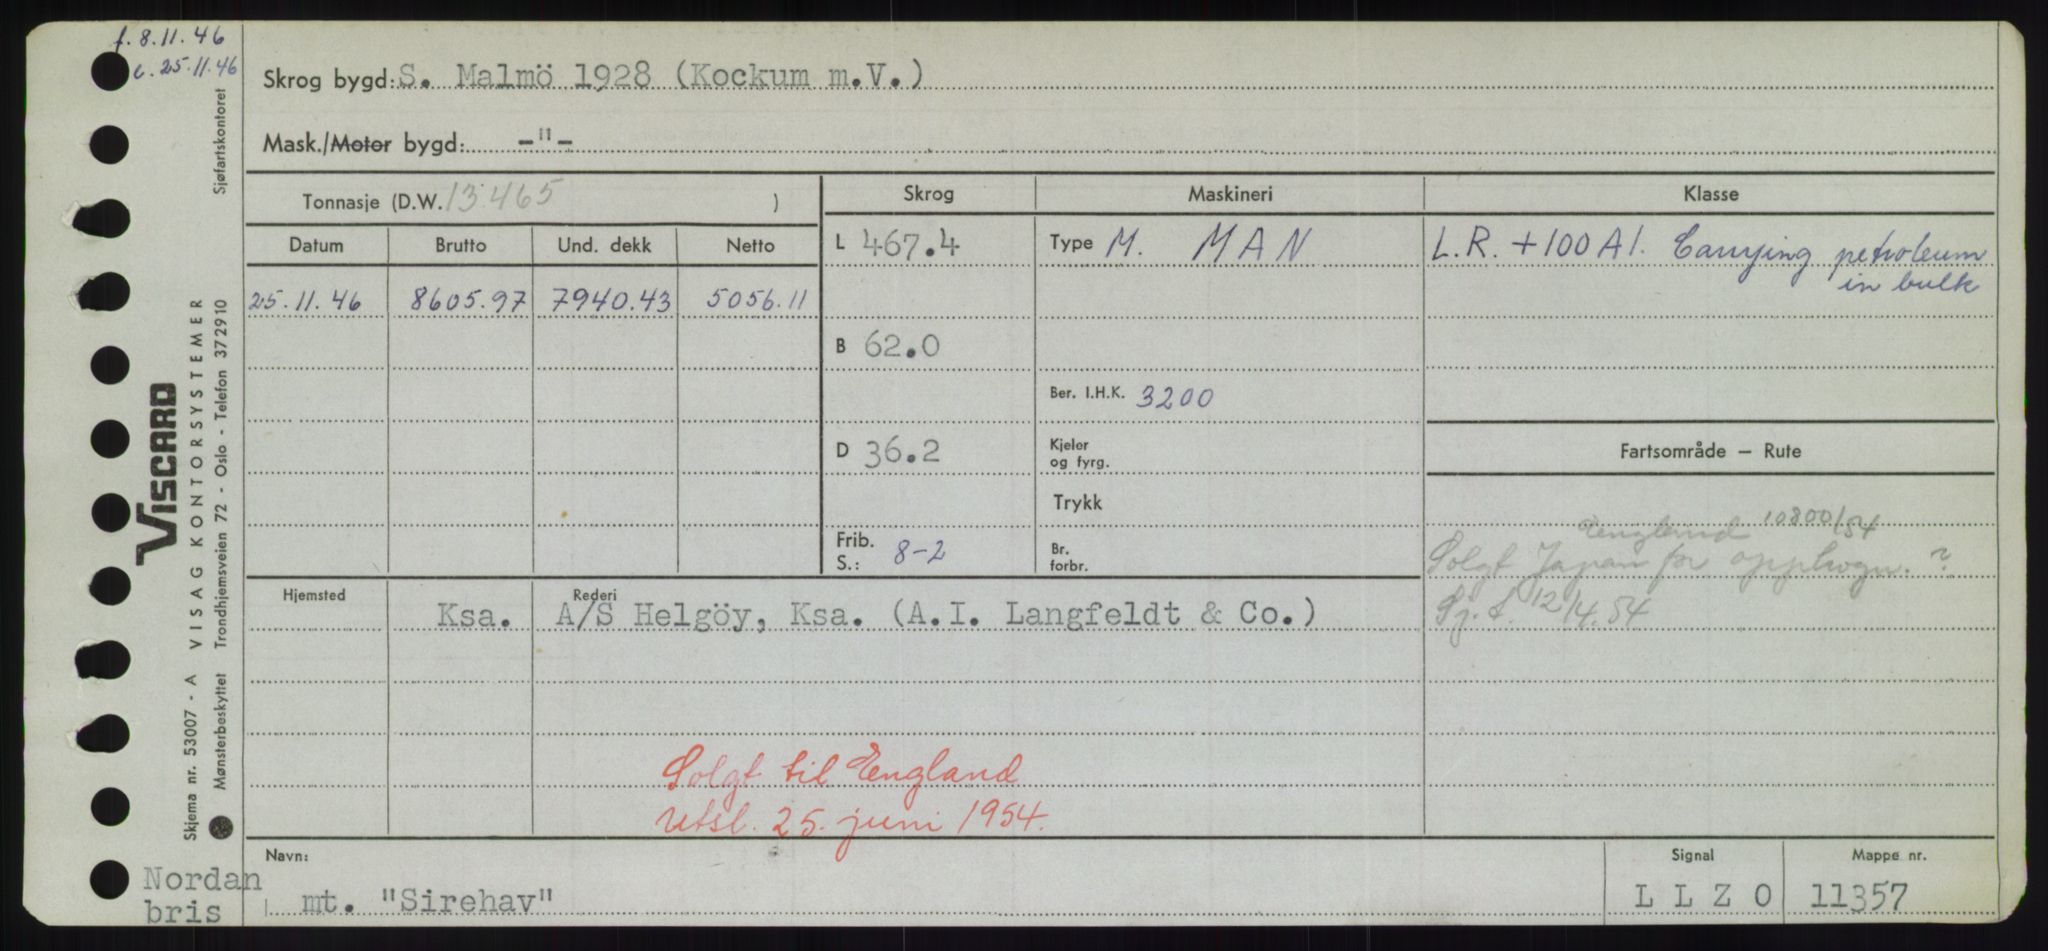 f. 8.11.46
c. 25.11.46
Skrog bygd: S. Malmö 1928 (Kockum m.V.)
Mask./Motor bygd: -"-
Tonnasje (D.W. 13.465 )
Skrog
Maskineri
Klasse
Datum Brutto Und. dekk Netto
L 467.4
Type M. MAN
L.R. +100 A1. Carrying petroleum
in bulk
25.11.46 8605.97 7940.43 5056.11
B 62.0
Ber. I.H.K. 3200
D 36.2
Kjeler
og fyrg.
Fartsområde — Rute
Trykk
Frib.
S.: 8-2
Br.
forbr.
England 10800/54
Solgt Japan for opphogn. ?
Sj.t. 12/4.54
Hjemsted
Ksa.
Rederi
A/S Helgöy, Ksa. (A.I. Langfeldt & Co.)
Solgt til England
Utsl. 25. juni 1954.
Navn:
mt. "Sirehav"
Signal
L L Z O
Mappe nr.
11357
Nordan
bris
VISCARD
Skjema nr. 53007 - A VISAG KONTORSYSTEMER
Mønsterbeskyttet Trondhjemsveien 72 - Oslo - Telefon 372910 Sjøfartskontoret